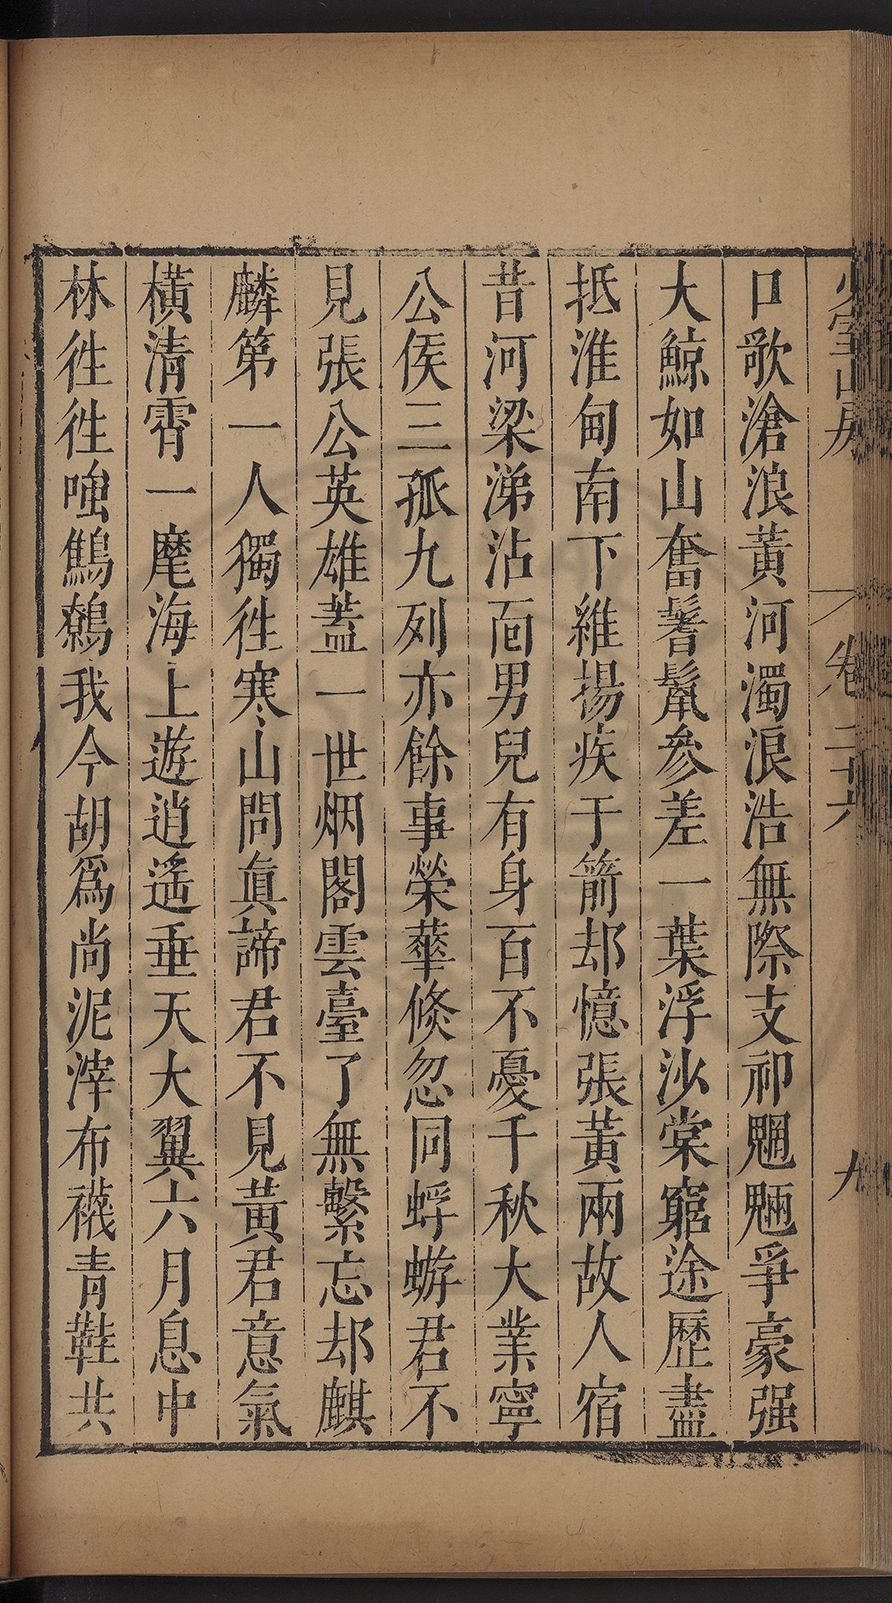 少室山房 卷二十六 九
口歌滄浪黃河濁浪浩無際支祁魍魎爭豪强
大鯨如山奮鬐鬣參差一葉浮沙棠窮途歷盡
抵淮甸南下維揚疾于箭却憶張黃兩故人宿
昔河梁涕沾面男兒有身百不憂千秋大業寧
公侯三孤九列亦餘事榮華倐忽同蜉蝣君不
見張公英雄蓋一世烟閣雲臺了無繫忘却麒
麟第一人獨徃寒山問眞諦君不見黃君意氣
橫清霄一麾海上遊逍遙垂天大翼六月息中
林徃徃嗤鷦鷯我今胡爲尚泥滓布襪青鞋共